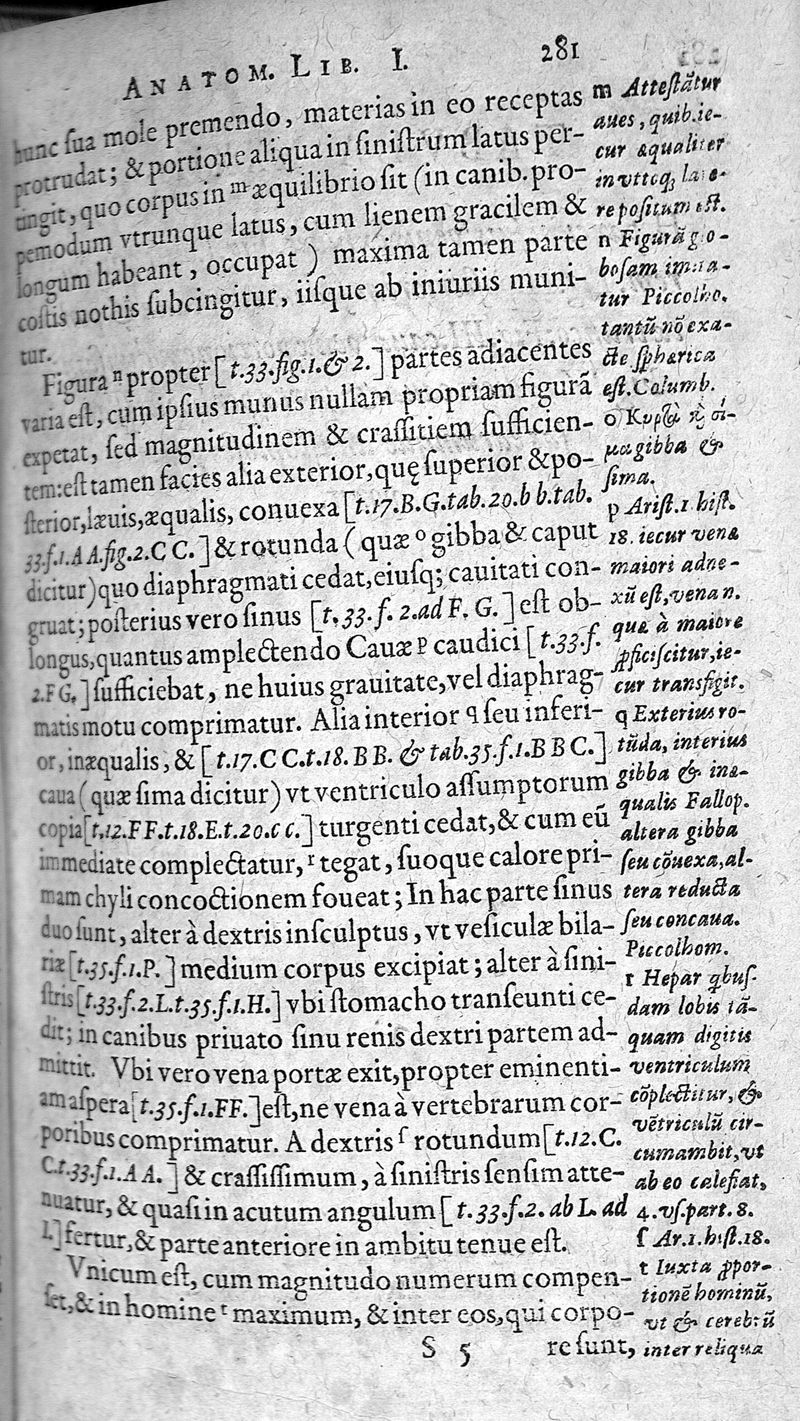 ANATOM. LIB. I. 281
hunc ſua mole premendo, materias in eo receptas
protrudat; & portione aliqua in ſiniſtrum latus per-
tingit, quo corpus in ᵐ æquilibrio ſit (in canib. pro-
pemodum vtrunque latus, cum lienem gracilem &
longum habeant, occupat) maxima tamen parte
coſtis nothis ſubcingitur, iiſque ab iniuriis muni-
tur.
Figura ⁿ propter [t.33.fig.1.& 2.] partes adiacentes
varia eſt, cum ipſius munus nullam propriam figurã
expetat, ſed magnitudinem & craſſitiem ſufficien-
tem: eſt tamen facies alia exterior, quę ſuperior & po-
ſterior, læuis, æqualis, conuexa [t.17.B.G.tab.20.b b.tab.
33.f.1.A A.fig.2.C C.] & rotunda (quæ ᵒ gibba & caput
dicitur) quo diaphragmati cedat, eiuſq; cauitati con-
gruat; poſterius vero ſinus [t.33.f.2.ad F.G.] eſt ob-
longus, quantus amplectendo Cauæ ᵖ caudici [t.33.f.
2.F G.] ſufficiebat, ne huius grauitate, vel diaphrag-
matis motu comprimatur. Alia interior ᑫ ſeu inferi-
or, inæqualis, & [t.17.C C.t.18.B B. & tab.35.f.1.B B C.]
caua (quæ ſima dicitur) vt ventriculo aſſumptorum
copia [t.12.F F.t.18.E.t.20.c c.] turgenti cedat, & cum eũ
immediate complectatur, ʳ tegat, ſuoque calore pri-
mam chyli concoctionem foueat; In hac parte ſinus
duo ſunt, alter à dextris inſculptus, vt veſiculæ bila-
riæ [t.35.f.1.P.] medium corpus excipiat; alter à ſini-
ſtris [t.33.f.2.L.t.35.f.1.H.] vbi ſtomacho tranſeunti ce-
dit; in canibus priuato ſinu renis dextri partem ad-
mittit. Vbi vero vena portæ exit, propter eminenti-
am aſpera [t.35.f.1.FF.] eſt, ne vena à vertebrarum cor-
poribus comprimatur. A dextris ſ rotundum [t.12.C.
C.t.33.f.1.A A.] & craſſiſſimum, à ſiniſtris ſenſim atte-
nuatur, & quaſi in acutum angulum [t.33.f.2. ab L. ad
I.] fertur, & parte anteriore in ambitu tenue eſt.
Vnicum eſt, cum magnitudo numerum compen-
ſet, & in homine ᵗ maximum, & inter eos, qui corpo-
S 5 re ſunt,
m Atteſtãtur
aues, quib. ie-
cur æqualiter
in vtroq; latere
repoſitum eſt.
n Figurã glo-
boſam imita-
tur Piccolho.
tantũ nõ exa-
cte ſphærica
eſt. Columb.
o Κυρτὰ κ σι-
μα gibba &
ſima.
p Ariſt. 1 hiſt.
18. iecur venæ
maiori adne-
xũ eſt, vena n.
quæ à maiore
ꝓficiſcitur, ie-
cur transfigit.
q Exterius ro-
tũda, interius
gibba & inæ-
qualis Fallop.
altera gibba
ſeu cõuexa, al-
tera reducta
ſeu concaua.
Piccolhom.
r Hepar quibuſ-
dam lobis tã-
quam digitis
ventriculum
cõplectitur, &
vẽtriculũ cir-
cumambit, vt
ab eo calefiat,
4. vſ. part. 8.
ſ Ar. 1. hiſt. 18.
t Iuxta ꝓpor-
tionẽ hominũ,
vt & cerebrũ
inter reliqua